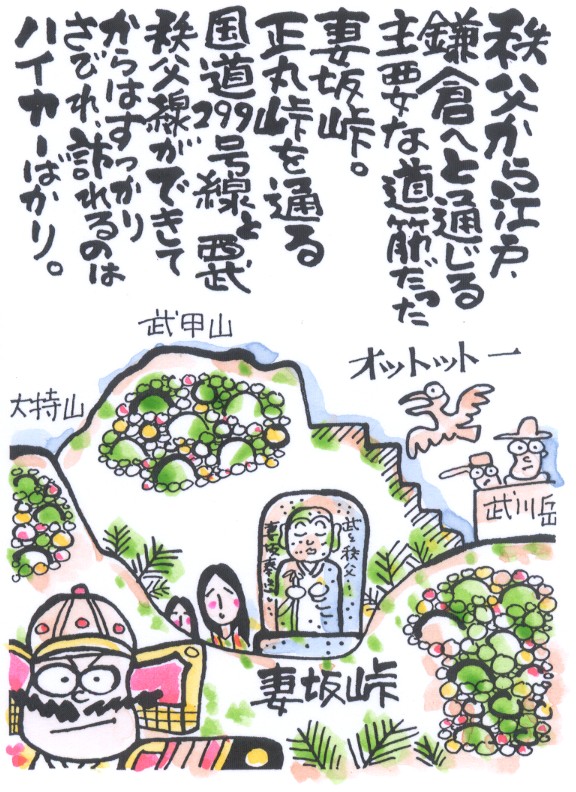 秩父から江戸、
鎌倉へと通じる
主要な道筋だった
妻坂峠。
正丸峠を通る
国道299号線と西武
秩父線ができて
からはすっかり
さびれ、訪れるのは
ハイカーばかり。
武甲山
大持山
オットットー
武川岳
武を秩父
妻坂峠